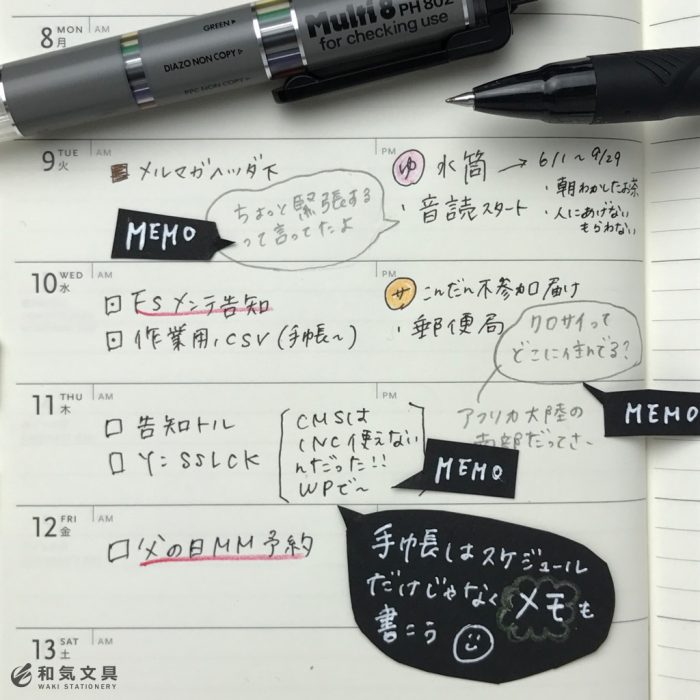 8 MON 月 AM
GREEN
DIAZO NON COPY
PPC NON COPY
Multi 8 PH 802
for checking use
9 TUE 火 AM
メルマガヘッダ下
ちょっと緊張する
って言ってたよ
MEMO
PM
ゆ 水筒 → 6/1〜9/29
・朝わかしたお茶
・人にあげない
もらわない
・音読スタート
10 WED 水 AM
FSメンテ告知
作業用.CSV(手帳〜)
PM
サ こんだん不参加届け
・郵便局
クロサイって
どこに住んでる?
アフリカ大陸の
南部だってさ〜
MEMO
11 THU 木 AM
告知トル
Y:SSLCK
CMSは
INC使えない
んだった!!
WPで〜
PM
MEMO
12 FRI 金 AM
父の日MM予約
手帳はスケジュール
だけじゃなくメモも
書こう
13 SAT 土 AM
和気文具
WAKI STATIONERY